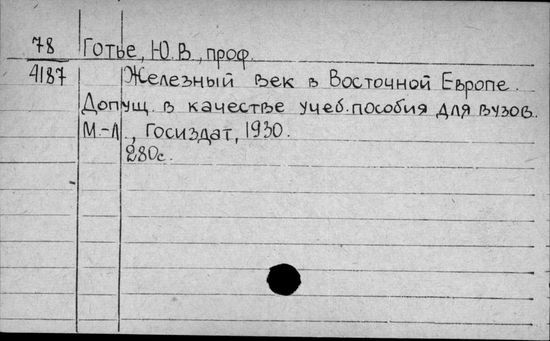 78 Готье, Ю.В., проф.
4187 Железный век в Восточной Европе.
Допущ. в качестве учеб. пособия для вузов.
М.-Л., Госиздат, 1930.
280с.